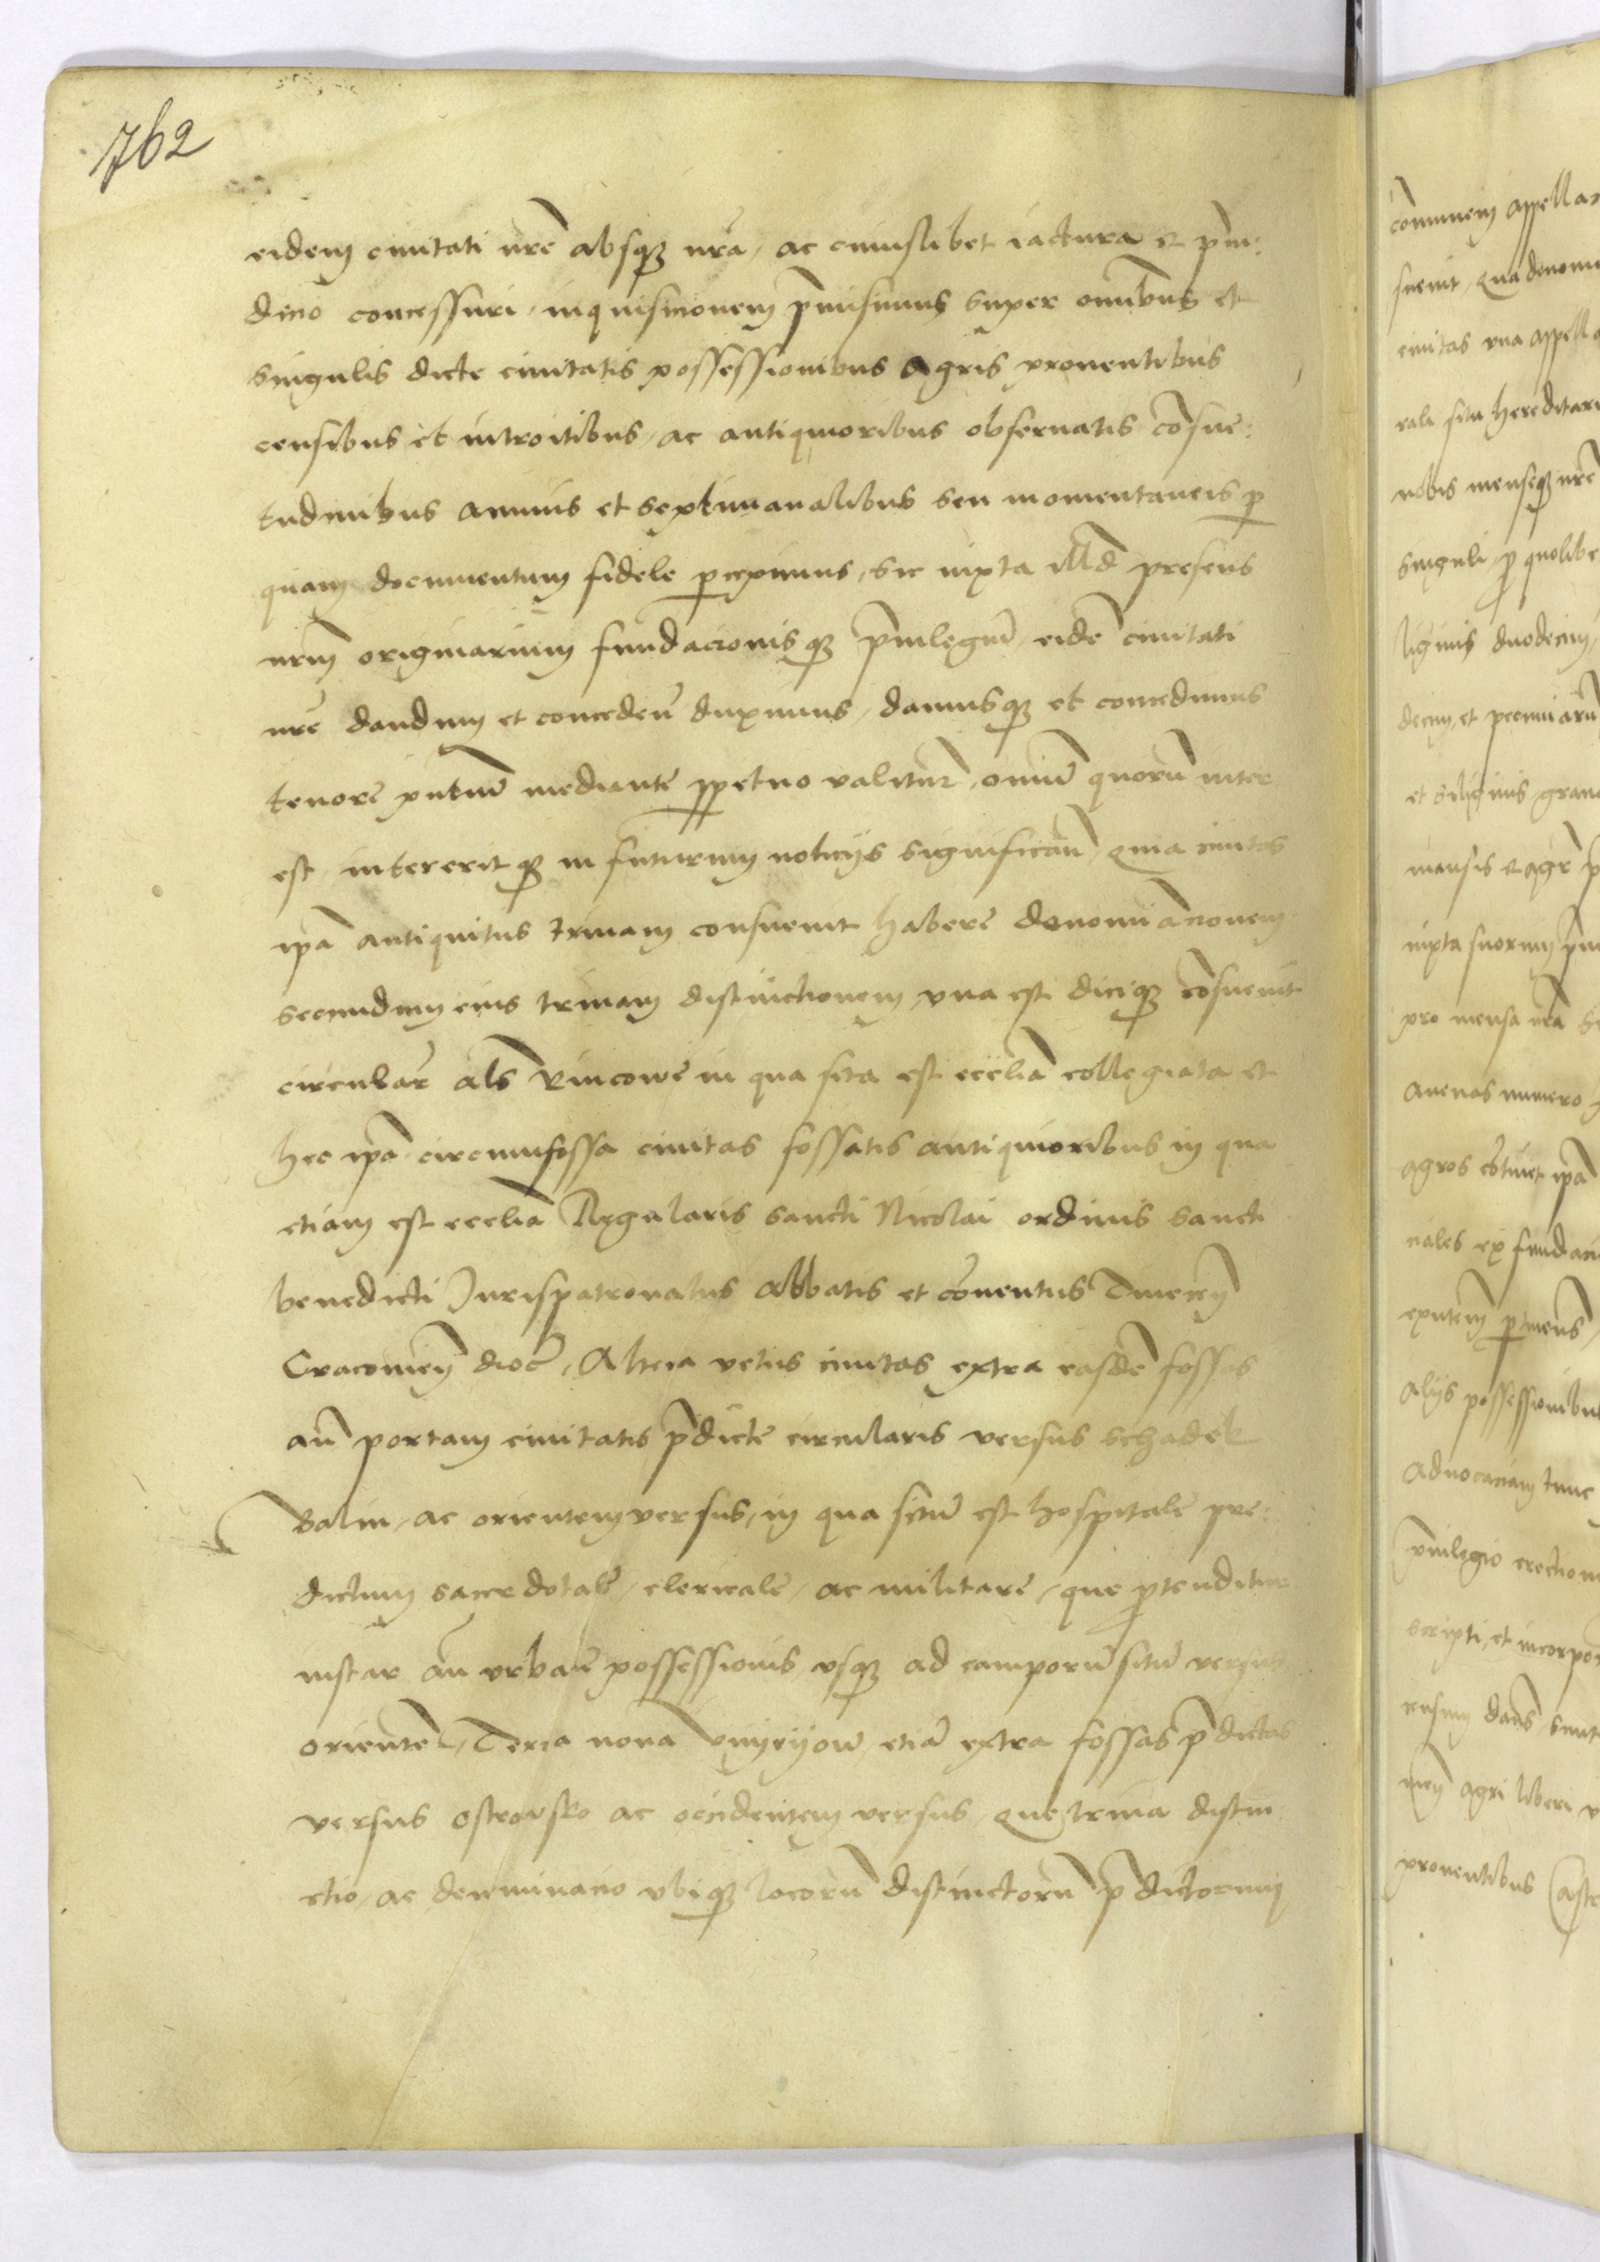 762
eidem ciuitati nrē absqȝ nrā, ac cuiuslibet iactura et p̄iu:
dicio concessuri, inquisicionem p̄misimus super omībus et
singulis dicte ciuitatis possessionibus agris prouentibus
censibus et introitibus, ac antiquioribus obseruatis cōsue:
tudinibus annuis et septimanalibus seu momentaneis ꝑ
quam documentum fidele ꝑcepimus, sic iuxta illd̄ presens
nrm̄ originarium fundacionisqȝ p̄uilegiū eidē ciuitati
nrē dandum et concedeñ duximus, damusqȝ et concedimus
tenore pn̄tiū mediante ꝑpetuo valitur̄, omniū quorū inter
est, intereritqȝ in futurum noticijs significañ, quia ciuitas
ipā antiquitus trinam consueuit habere denominācionem
secundum eius trinam distinctionem, vna est diciqȝ cōsueuit
circular̄ als̄ Vincowe in qua sita est ecclīa collegiata et
hec ipā circumfossa ciuitas fossatis antiquioribus in qua
etiam est ecclīa Regularis sancti Nicolai ordinis sancti
benedicti Jurispatronatus abbatis et cōuentus Tinecen̄
Cracouien̄ dioc̄, Altera vetus ciuitas extra easdē fossas
an̄ portam ciuitatis p̄dicte circularis versus schadek
Valin, ac orientem versus, in qua sitū est hospitale pre:
dictum sacerdotale, clericale, ac militare, que ꝓtenditur
instar an̄ vrbañ possessionis, vsqȝ ad camporū sitū versus
orientē, Tercia noua etiā extra fossas p̄dictas
versus ostrowsko ac occidentem versus, Que trina distin
ctio, ac denominacio vbiqȝ locorū distinctorū p̄dictorum
cōmunem
sueuit,
ciuitas vna
rali situ
nobis menseqȝ nrē
singuli ꝓ
duodecim,
decim, et
et siliginis
mansis et
iuxta suorum
pro mensa nrā
auenas numero
agros
nales ex
alijs
Aduocaciam tunc
p̄uilegio
scripti, et
agri liberi
prouentibus